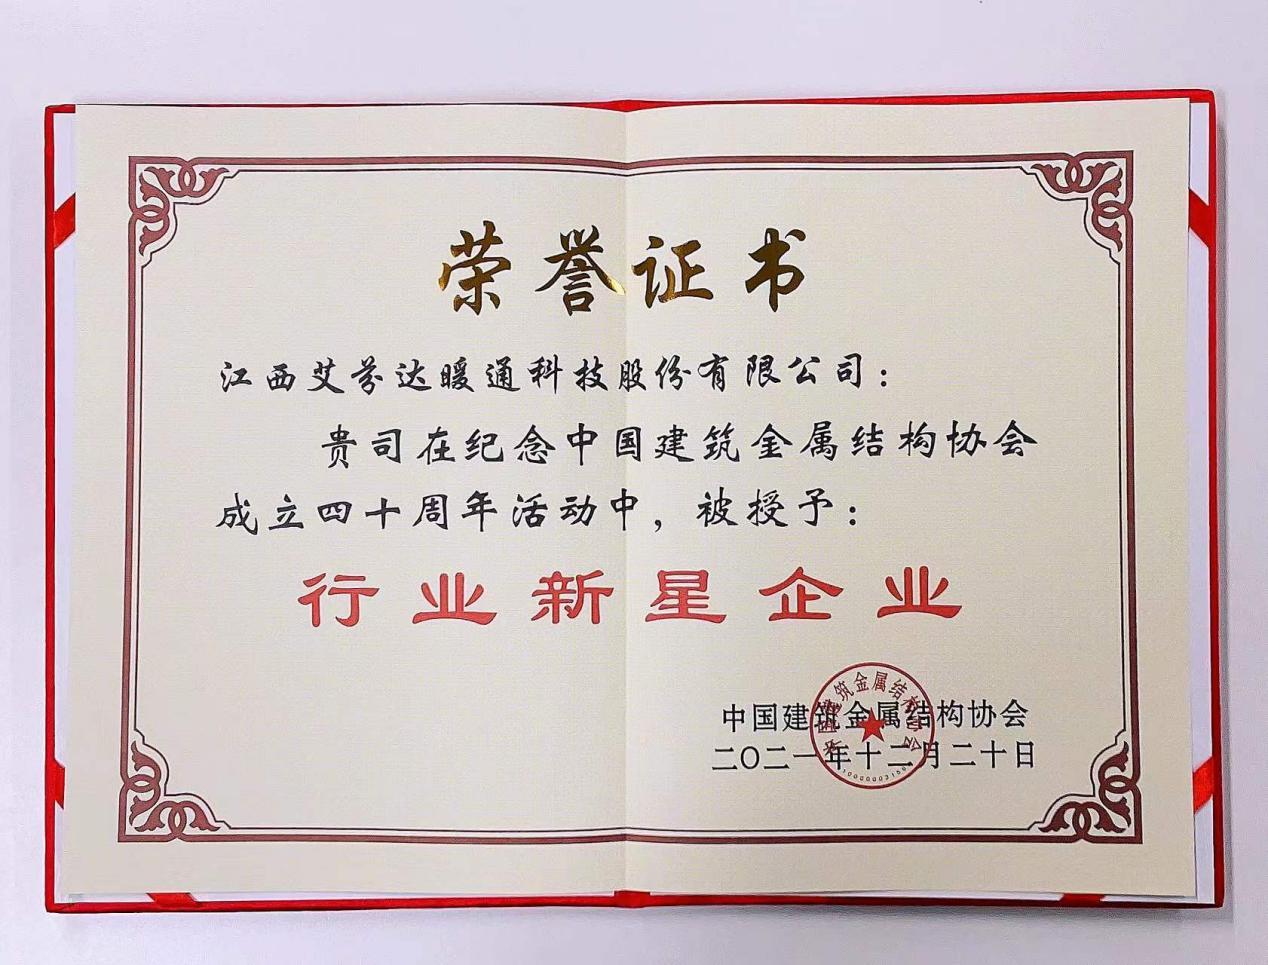 荣誉证书
江西艾芬达暖通科技股份有限公司：
贵司在纪念中国建筑金属结构协会
成立四十周年活动中，被授予：
行业新星企业
中国建筑金属结构协会
二〇二一年十二月二十日
中国建筑金属结构协会